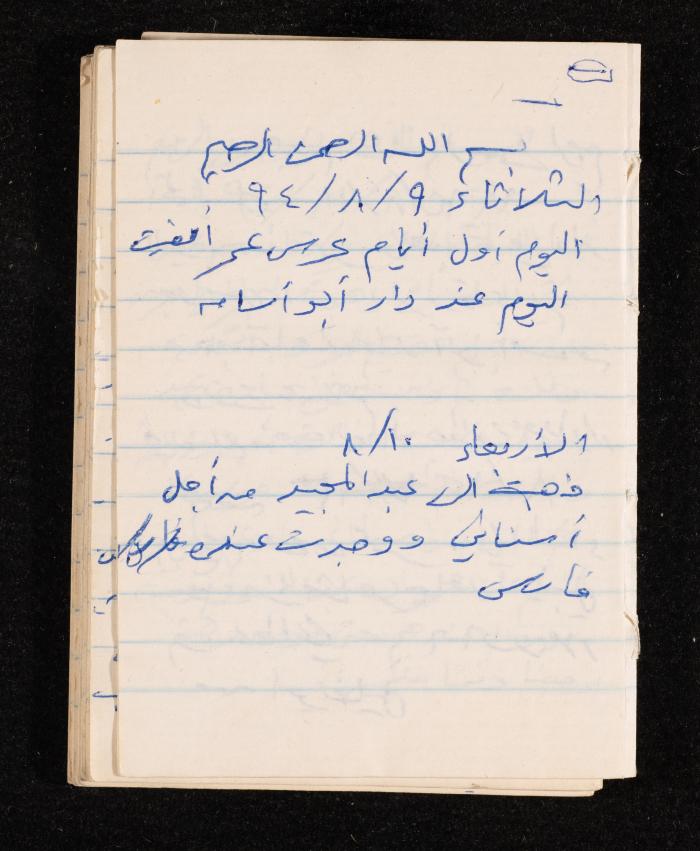 بسم الله الرحمن الرحيم
الثلاثاء ٩٤/٨/٩
اليوم أول أيام عرس عمر أمضيت
اليوم عند دار أبو أسامه
الأربعاء ٨/١٠
ذهبت الى عبد المجيد من أجل
أسناني ووجدت عنده
فارس